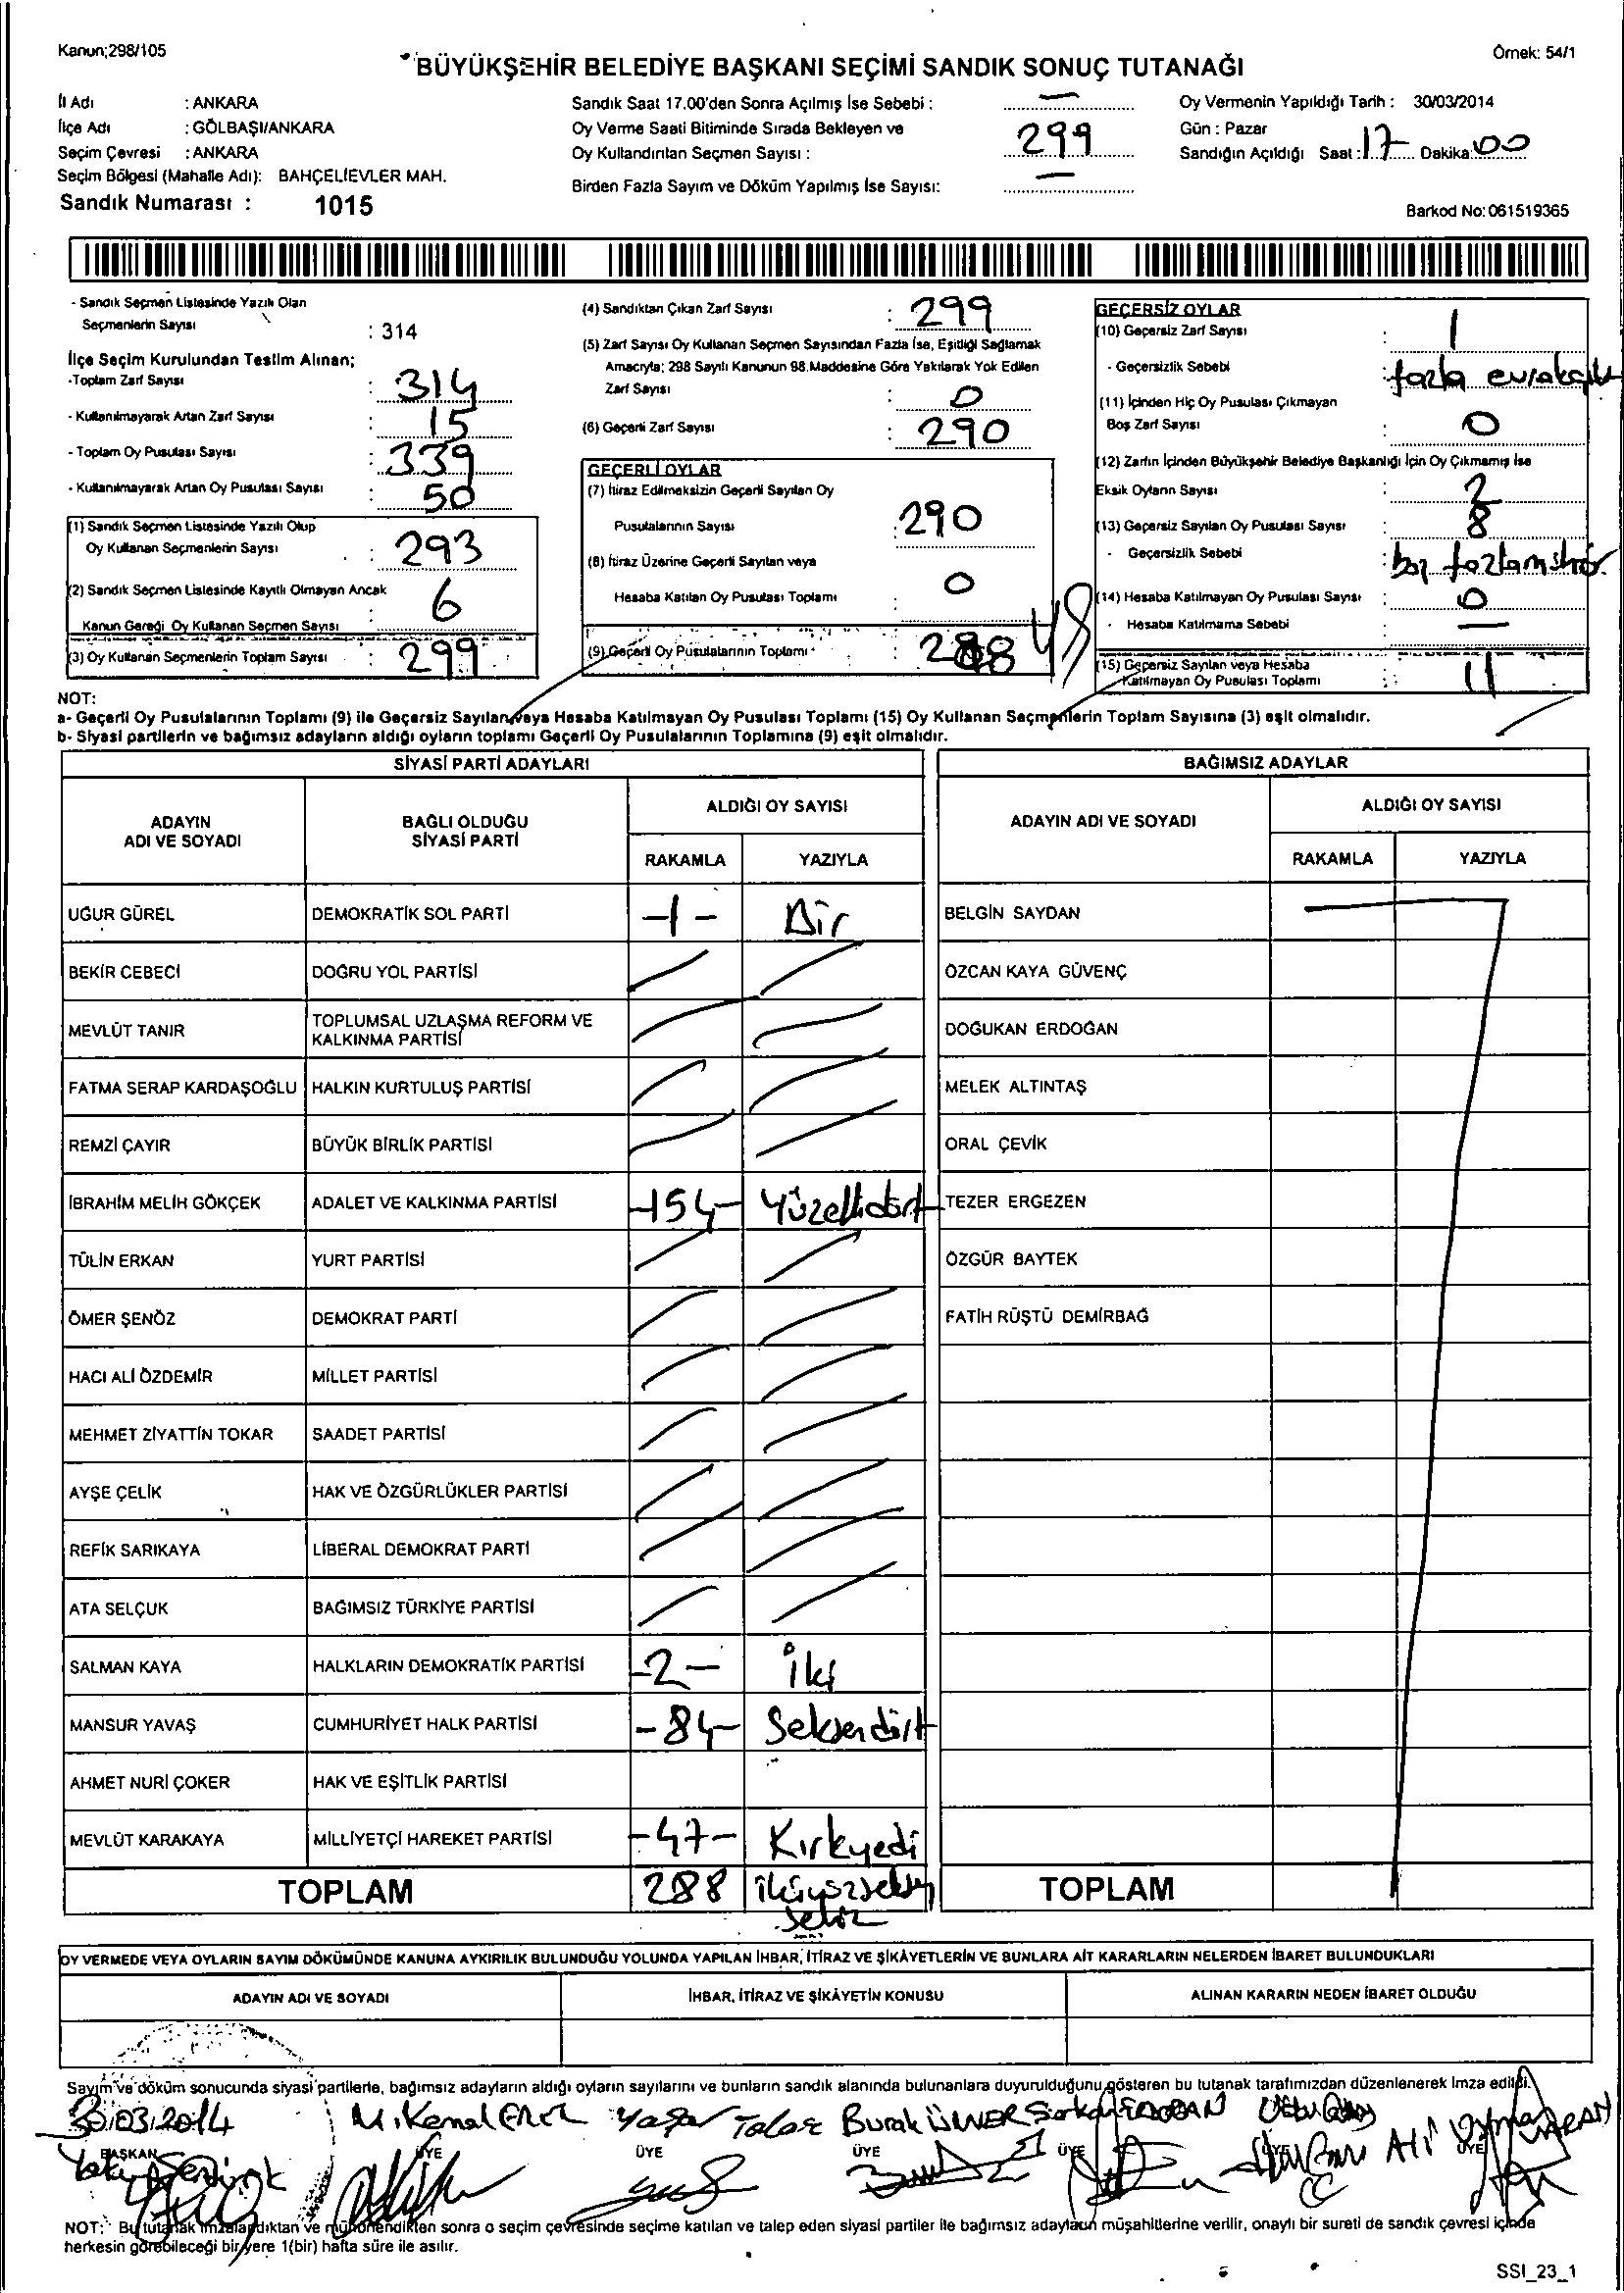 Kanun;298/105
Örnek: 54/1
BÜYÜKŞEHİR BELEDİYE BAŞKANI SEÇİMİ SANDIK SONUÇ TUTANAĞI
İl Adı : ANKARA
İlçe Adı : GÖLBAŞI/ANKARA
Seçim Çevresi : ANKARA
Seçim Bölgesi (Mahalle Adı): BAHÇELİEVLER MAH.
Sandık Numarası : 1015
Sandık Saat 17.00'den Sonra Açılmış İse Sebebi : —
Oy Verme Saati Bitiminde Sırada Bekleyen ve
Oy Kullandırılan Seçmen Sayısı : 299
Birden Fazla Sayım ve Döküm Yapılmış İse Sayısı: —
Oy Vermenin Yapıldığı Tarih : 30/03/2014
Gün : Pazar
Sandığın Açıldığı Saat : 17 Dakika: 00
Barkod No: 061519365
- Sandık Seçmen Listesinde Yazılı Olan
Seçmenlerin Sayısı : 314
İlçe Seçim Kurulundan Teslim Alınan;
-Toplam Zarf Sayısı : 314
- Kullanılmayarak Artan Zarf Sayısı : 15
- Toplam Oy Pusulası Sayısı : 339
- Kullanılmayarak Artan Oy Pusulası Sayısı : 50
(1) Sandık Seçmen Listesinde Yazılı Olup
Oy Kullanan Seçmenlerin Sayısı : 293
(2) Sandık Seçmen Listesinde Kayıtlı Olmayan Ancak
Kanun Gereği Oy Kullanan Seçmen Sayısı : 6
(3) Oy Kullanan Seçmenlerin Toplam Sayısı : 299
(4) Sandıktan Çıkan Zarf Sayısı : 299
(5) Zarf Sayısı Oy Kullanan Seçmen Sayısından Fazla İse, Eşitliği Sağlamak
Amacıyla; 298 Sayılı Kanunun 98.Maddesine Göre Yakılarak Yok Edilen
Zarf Sayısı : 0
(6) Geçerli Zarf Sayısı : 290
GEÇERLİ OYLAR
(7) İtiraz Edilmeksizin Geçerli Sayılan Oy
Pusulalarının Sayısı : 290
(8) İtiraz Üzerine Geçerli Sayılan veya
Hesaba Katılan Oy Pusulası Toplamı : 0
(9) Geçerli Oy Pusulalarının Toplamı : 288
GEÇERSİZ OYLAR
(10) Geçersiz Zarf Sayısı : 1
- Geçersizlik Sebebi : fazla
(11) İçinden Hiç Oy Pusulası Çıkmayan
Boş Zarf Sayısı : 0
(12) Zarfın İçinden Büyükşehir Belediye Başkanlığı İçin Oy Çıkmamış İse
Eksik Oyların Sayısı : 2
(13) Geçersiz Sayılan Oy Pusulası Sayısı : 8
- Geçersizlik Sebebi :
(14) Hesaba Katılmayan Oy Pusulası Sayısı : 0
- Hesaba Katılmama Sebebi —
(15) Geçersiz Sayılan veya Hesaba
Katılmayan Oy Pusulası Toplamı : 11
NOT:
a- Geçerli Oy Pusulalarının Toplamı (9) ile Geçersiz Sayılan veya Hesaba Katılmayan Oy Pusulası Toplamı (15) Oy Kullanan Seçmenlerin Toplam Sayısına (3) eşit olmalıdır.
b- Siyasi partilerin ve bağımsız adayların aldığı oyların toplamı Geçerli Oy Pusulalarının Toplamına (9) eşit olmalıdır.
SİYASİ PARTİ ADAYLARI
ADAYIN ADI VE SOYADI
BAĞLI OLDUĞU SİYASİ PARTİ
ALDIĞI OY SAYISI
RAKAMLA YAZIYLA
UĞUR GÜREL DEMOKRATİK SOL PARTİ -1- Bir
BEKİR CEBECİ DOĞRU YOL PARTİSİ
MEVLÜT TANIR TOPLUMSAL UZLAŞMA REFORM VE KALKINMA PARTİSİ
FATMA SERAP KARDAŞOĞLU HALKIN KURTULUŞ PARTİSİ
REMZİ ÇAYIR BÜYÜK BİRLİK PARTİSİ
İBRAHİM MELİH GÖKÇEK ADALET VE KALKINMA PARTİSİ -154- Yüzellidört
TÜLİN ERKAN YURT PARTİSİ
ÖMER ŞENÖZ DEMOKRAT PARTİ
HACI ALİ ÖZDEMİR MİLLET PARTİSİ
MEHMET ZİYATTİN TOKAR SAADET PARTİSİ
AYŞE ÇELİK HAK VE ÖZGÜRLÜKLER PARTİSİ
REFİK SARIKAYA LİBERAL DEMOKRAT PARTİ
ATA SELÇUK BAĞIMSIZ TÜRKİYE PARTİSİ
SALMAN KAYA HALKLARIN DEMOKRATİK PARTİSİ -2- İki
MANSUR YAVAŞ CUMHURİYET HALK PARTİSİ -84- Seksendört
AHMET NURİ ÇOKER HAK VE EŞİTLİK PARTİSİ
MEVLÜT KARAKAYA MİLLİYETÇİ HAREKET PARTİSİ -47- Kırkyedi
TOPLAM 288 ikiyüzseksen
sekiz
BAĞIMSIZ ADAYLAR
ADAYIN ADI VE SOYADI
ALDIĞI OY SAYISI
RAKAMLA YAZIYLA
BELGİN SAYDAN
ÖZCAN KAYA GÜVENÇ
DOĞUKAN ERDOĞAN
MELEK ALTINTAŞ
ORAL ÇEVİK
TEZER ERGEZEN
ÖZGÜR BAYTEK
FATİH RÜŞTÜ DEMİRBAĞ
TOPLAM
OY VERMEDE VEYA OYLARIN SAYIM DÖKÜMÜNDE KANUNA AYKIRILIK BULUNDUĞU YOLUNDA YAPILAN İHBAR, İTİRAZ VE ŞİKÂYETLERİN VE BUNLARA AİT KARARLARIN NELERDEN İBARET BULUNDUKLARI
ADAYIN ADI VE SOYADI İHBAR, İTİRAZ VE ŞİKÂYETİN KONUSU ALINAN KARARIN NEDEN İBARET OLDUĞU
Sayım ve döküm sonucunda siyasi partilerle, bağımsız adayların aldığı oyların sayılarını ve bunların sandık alanında bulunanlara duyurulduğunu gösteren bu tutanak tarafımızdan düzenlenerek imza edildi.
30.03.2014 M. Kemal Yaşar Burak ÜNVER Serkan ERDOĞAN Ali
BAŞKAN ÜYE ÜYE ÜYE ÜYE ÜYE ÜYE
NOT: Bu tutanak imzalandıktan ve mühürlendikten sonra o seçim çevresinde seçime katılan ve talep eden siyasi partiler ile bağımsız adayların müşahitlerine verilir, onaylı bir sureti de sandık çevresi içinde
herkesin görebileceği bir yere 1(bir) hafta süre ile asılır.
SSI_23_1